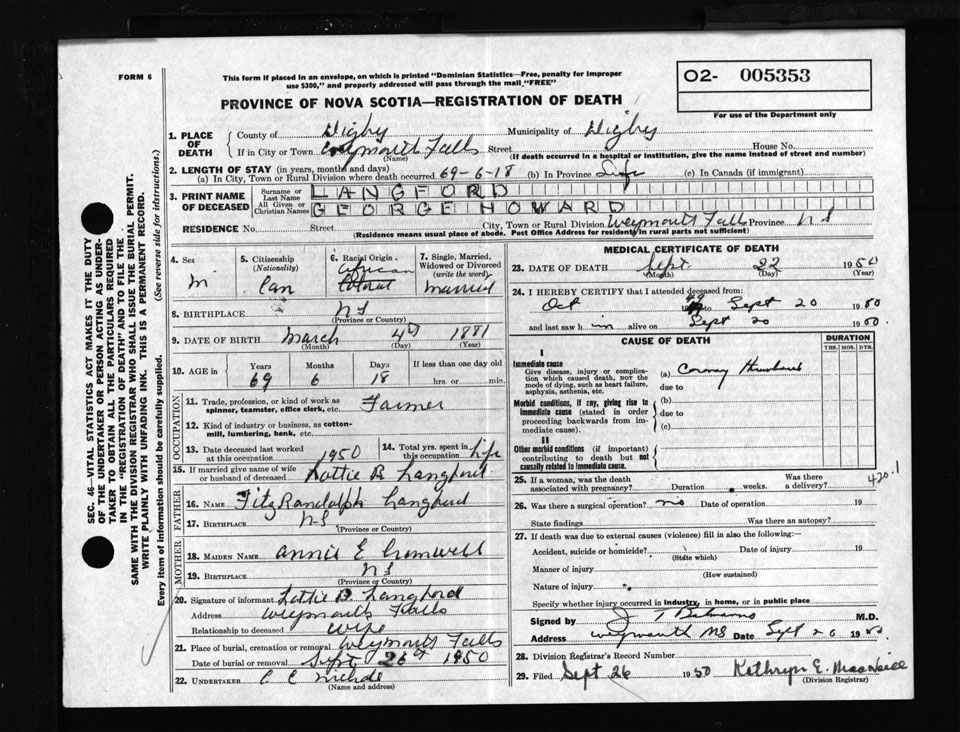 FORM 6
This form if placed in an envelope, on which is printed "Dominion Statistics—Free, penalty for improper
use $300," and properly addressed will pass through the mail "FREE"
O2- 005353
For use of the Department only
PROVINCE OF NOVA SCOTIA—REGISTRATION OF DEATH
SEC. 46—VITAL STATISTICS ACT MAKES IT THE DUTY
OF THE UNDERTAKER OR PERSON ACTING AS UNDER-
TAKER TO OBTAIN ALL THE PARTICULARS REQUIRED
IN THE "REGISTRATION OF DEATH" AND TO FILE THE
SAME WITH THE DIVISION REGISTRAR WHO SHALL ISSUE THE BURIAL PERMIT.
WRITE PLAINLY WITH UNFADING INK. THIS IS A PERMANENT RECORD.
Every item of information should be carefully supplied. (See reverse side for instructions.)
1. PLACE OF DEATH
County of Digby Municipality of Digby
If in City or Town Weymouth Falls Street House No.
(Name) (If death occurred in a hospital or institution, give the name instead of street and number)
2. LENGTH OF STAY (in years, months and days)
(a) In City, Town or Rural Division where death occurred 69-6-18 (b) In Province Life (c) In Canada (if immigrant)
3. PRINT NAME OF DECEASED
Surname or Last Name LANGFORD
All Given or Christian Names GEORGE HOWARD
RESIDENCE No. Street City, Town or Rural Division Weymouth Falls Province NS
(Residence means usual place of abode. Post Office Address for residents in rural parts not sufficient)
4. Sex M
5. Citizenship (Nationality) Can
6. Racial Origin African
7. Single, Married, Widowed or Divorced (write the word) Married
8. BIRTHPLACE NS
(Province or Country)
9. DATE OF BIRTH March 4th 1881
(Month) (Day) (Year)
10. AGE in Years Months Days If less than one day old
69 6 18 hrs. or min.
OCCUPATION
11. Trade, profession, or kind of work as spinner, teamster, office clerk, etc. Farmer
12. Kind of industry or business, as cotton-mill, lumbering, bank, etc.
13. Date deceased last worked at this occupation 1950
14. Total yrs. spent in this occupation Life
15. If married give name of wife or husband of deceased Lottie B Langford
FATHER
16. NAME Fitz Randolph Langford
17. BIRTHPLACE NS
(Province or Country)
MOTHER
18. MAIDEN NAME Annie E Cromwell
19. BIRTHPLACE NS
(Province or Country)
20. Signature of informant Lottie B. Langford
Address Weymouth Falls
Relationship to deceased Wife
21. Place of burial, cremation or removal Weymouth Falls
Date of burial or removal Sept 26th 1950
22. UNDERTAKER C C
(Name and address)
MEDICAL CERTIFICATE OF DEATH
23. DATE OF DEATH Sept. 22 1950
(Month) (Day) (Year)
24. I HEREBY CERTIFY that I attended deceased from:
Oct 49 to Sept 20 1950
and last saw him alive on Sept 20 1950.
CAUSE OF DEATH
DURATION
YRS. MOS. DYS.
I
Immediate cause
Give disease, injury or complication which caused death, NOT the mode of dying, such as heart failure, asphyxia, asthenia, etc.
(a) Coronary Thrombosis
due to
Morbid conditions, if any, giving rise to immediate cause (stated in order proceeding backwards from immediate cause).
(b)
due to
(c)
II
Other morbid conditions (if important) contributing to death but not causally related to immediate cause.
420.1
25. If a woman, was the death associated with pregnancy? Duration weeks. Was there a delivery?
26. Was there a surgical operation? no Date of operation 19
State findings Was there an autopsy?
27. If death was due to external causes (violence) fill in also the following:—
Accident, suicide or homicide? Date of injury 19
(State which)
Manner of injury
(How sustained)
Nature of injury
Specify whether injury occurred in industry, in home, or in public place
Signed by J T M.D.
Address Weymouth NS Date Sept 26 1950
28. Division Registrar's Record Number
29. Filed Sept 26 1950 Kathryn E. MacNeill
(Division Registrar)